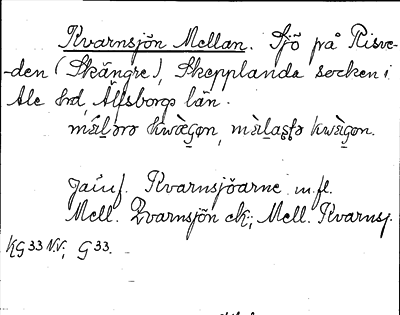 Kvarnsjön Mellan. Sjö på Risve-
-den (Skängre), Skepplanda socken i
Ale hrd, Älfsborgs län.
Jämf. Kvarnsjöarne m. fl.
Mell. Qvarnsjön ek; Mell. Kvarnsj.
KG 33 N.V; G 33.